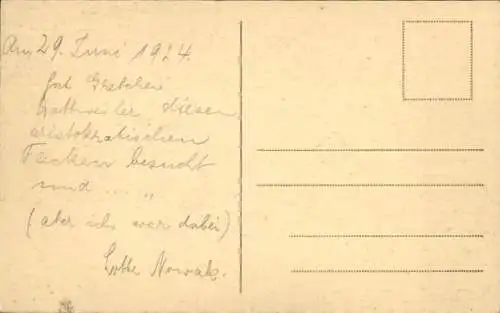 Am 29. Juni 1924.
hat Gretchen
diesen
aristokratischen
Flecken besucht
und .... „
(aber ich war dabei)
Lotte Nowak.